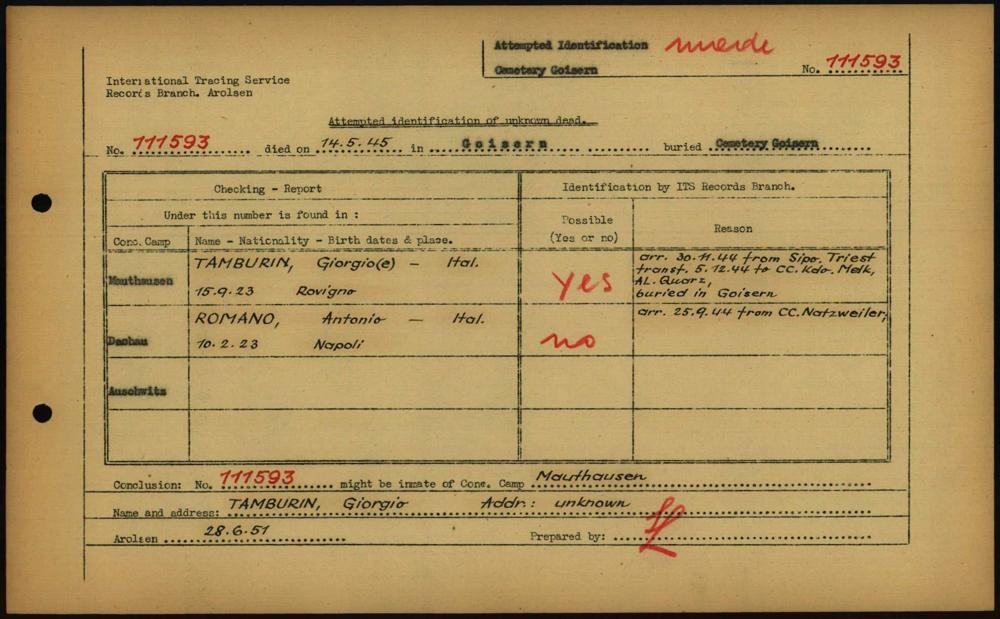 Attempted Identification made
Cemetery Goisern No. 111593
International Tracing Service
Records Branch. Arolsen
Attempted identification of unknown dead.
No. 111593 died on 14.5.45 in Goisern buried Cemetery Goisern
Checking - Report Identification by ITS Records Branch.
Under this number is found in :
Possible
(Yes or no) Reason
Conc. Camp Name - Nationality - Birth dates & place.
Mauthausen TAMBURIN, Giorgio(e) - Ital.
15.9.23 Rovigno
yes
arr. 30.11.44 from Sipo. Triest
transf. 5.12.44 to CC. Kdo. Melk,
AL. Quarz,
buried in Goisern
Dachau ROMANO, Antonio - Ital.
10.2.23 Napoli
no
arr. 25.9.44 from CC. Natzweiler,
Auschwitz
Conclusion: No. 111593 might be inmate of Conc. Camp Mauthausen
Name and address: TAMBURIN, Giorgio Addr.: unknown
Arolsen 28.6.51 Prepared by: